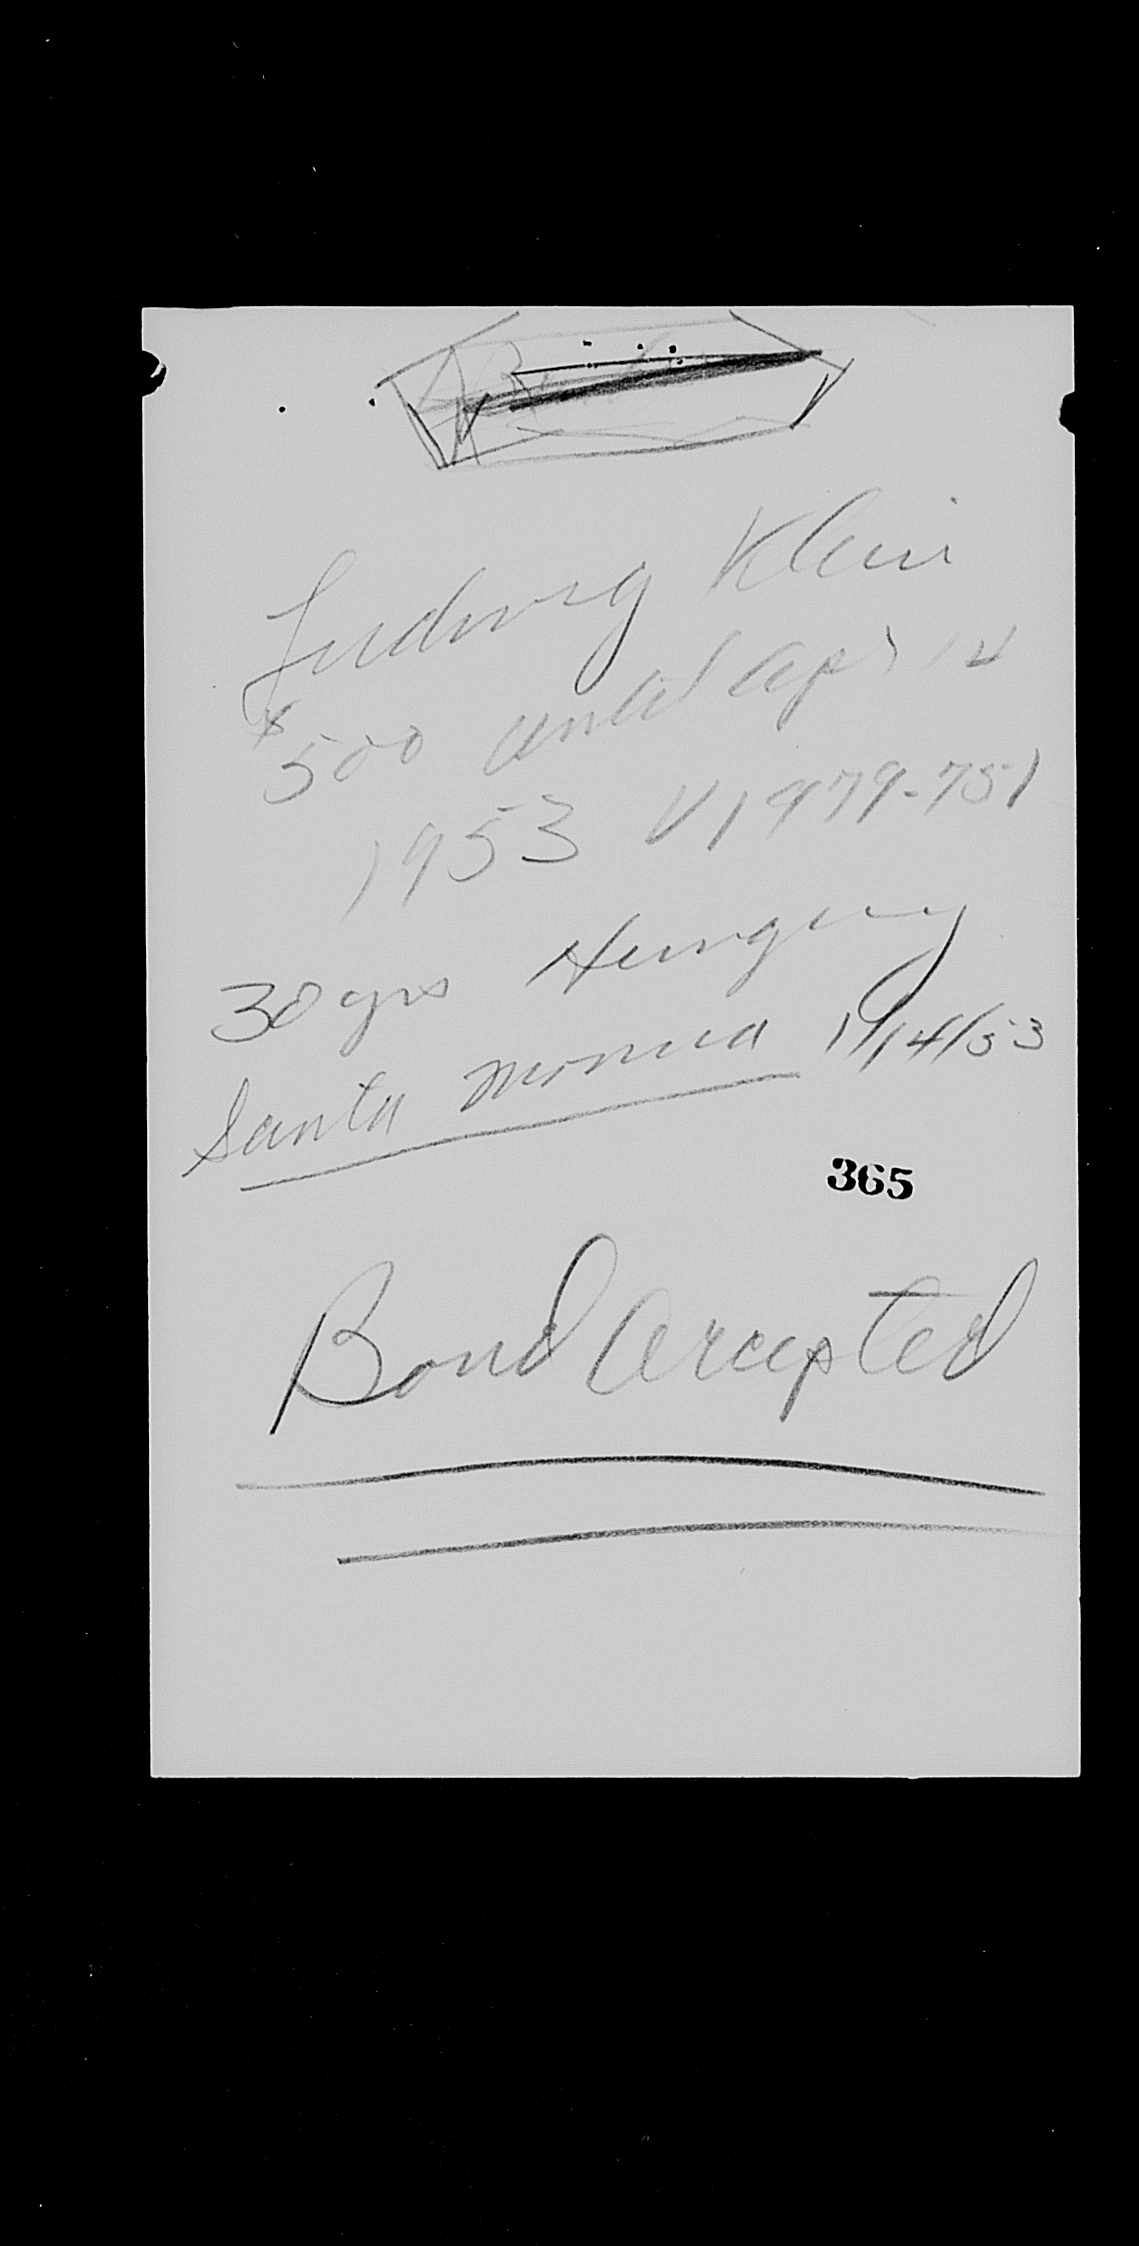 Ludwig Klein
$500 until Apr 14
1953 V1979-751
30 yrs Hungary
Santa Monica 1/14/53
365
Bond Accepted